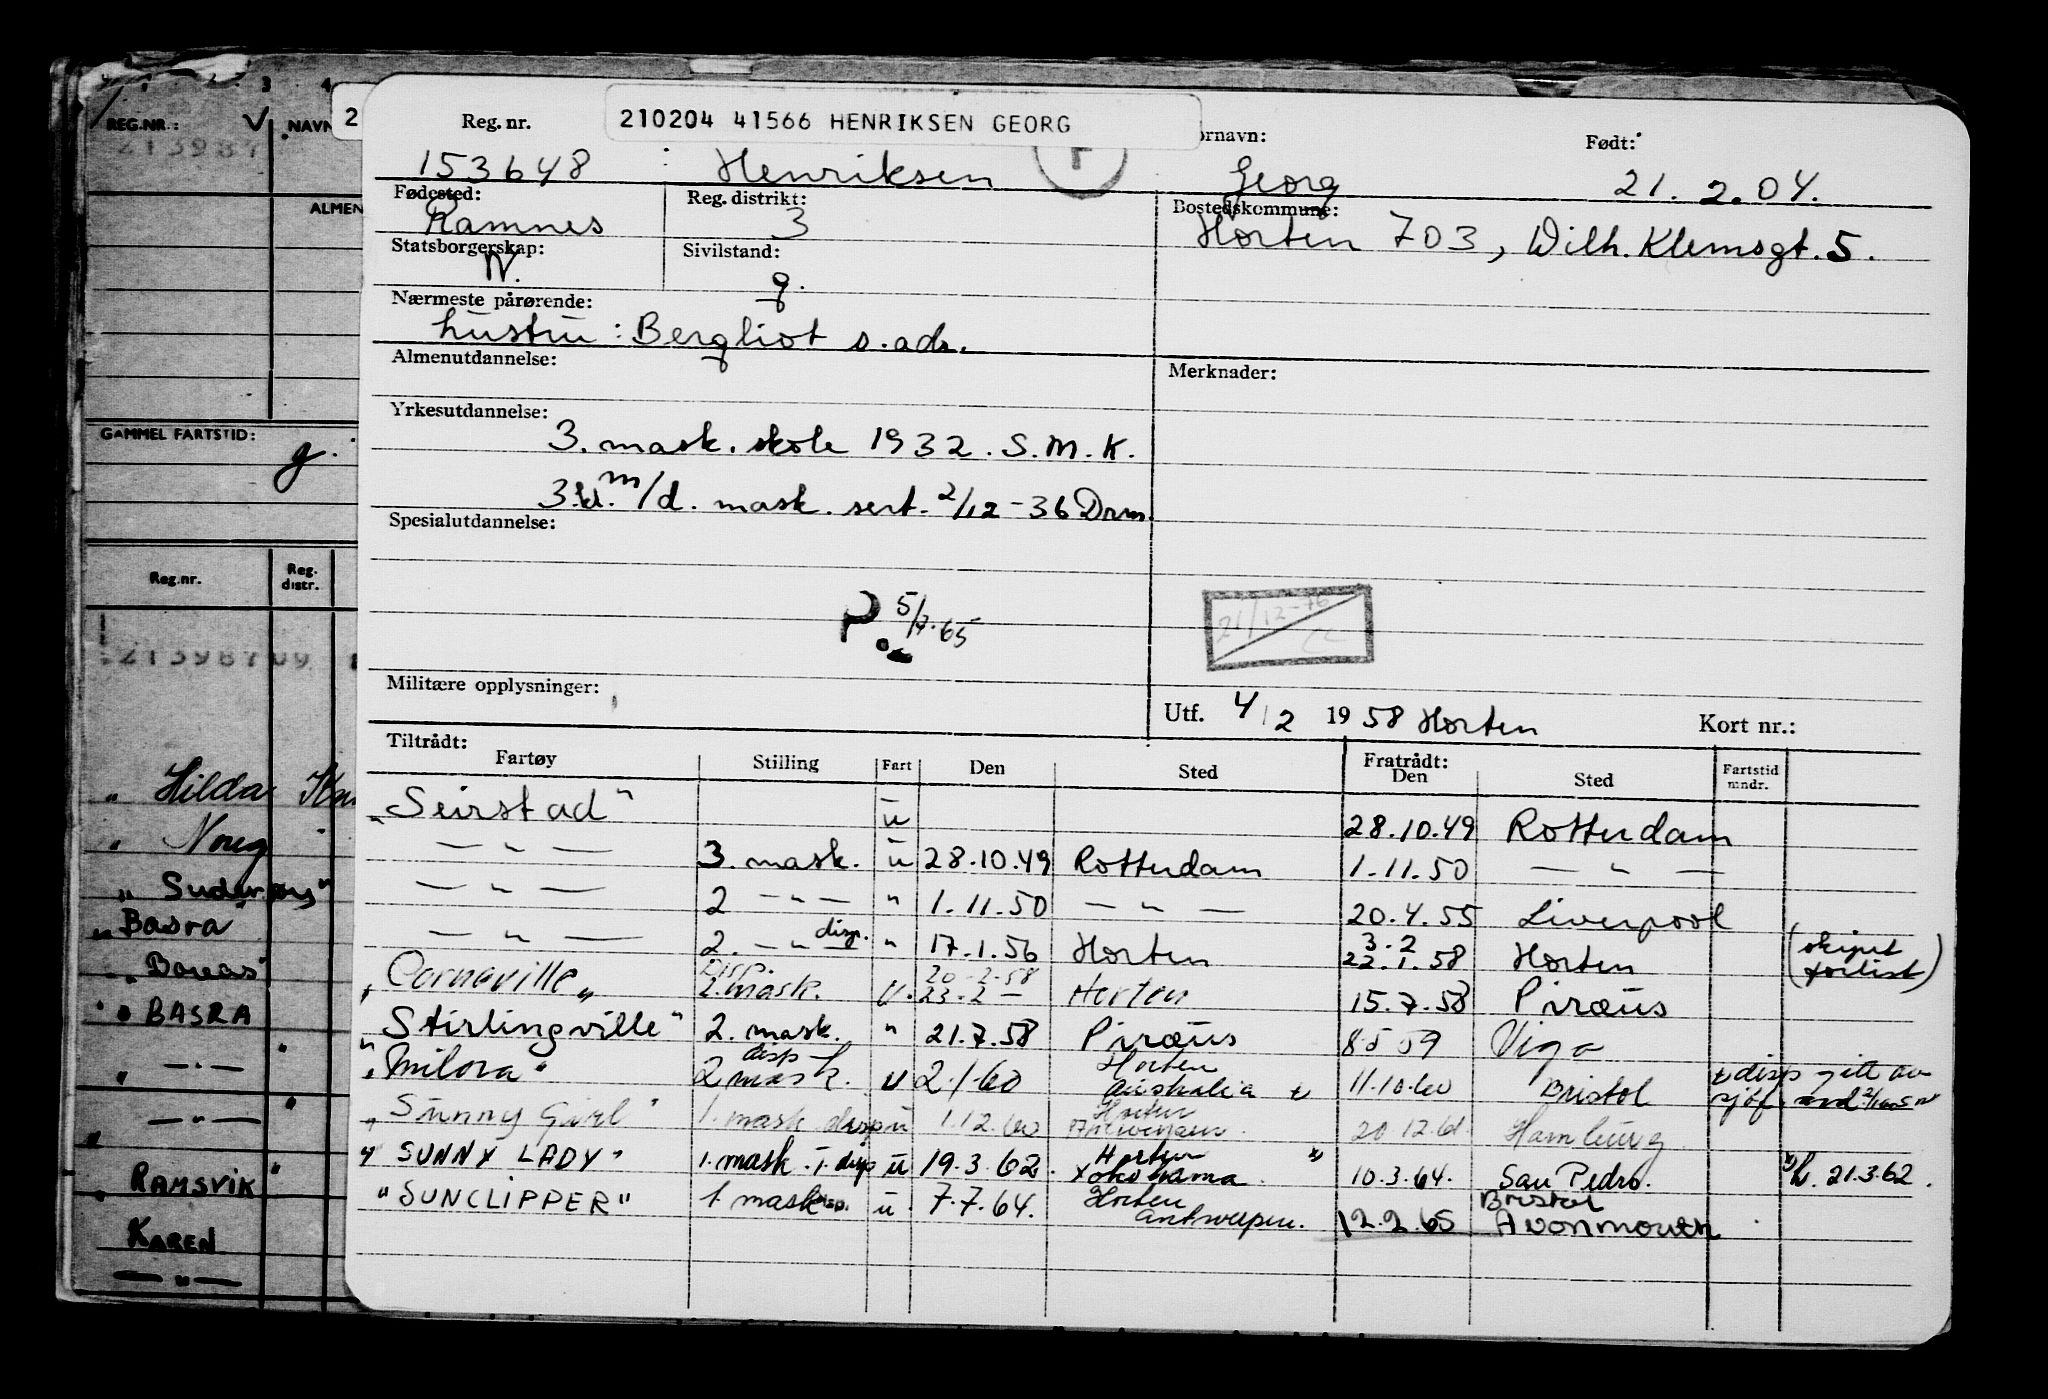 1 2 3 4
REG.NR.: NAVN
213987
ALMEN
GAMMEL FARTSTID:
g.
Reg.nr. Reg. distr.
21398709
" Hilda
"
" Suderøy"
" Basra"
" Boreas"
" BASRA
" — " —
" — " —
" RAMSVIK"
" KAREN
— " —
2
210204 41566 HENRIKSEN GEORG
Reg. nr. ornavn: Født:
153648 Henriksen F Georg 21. 2. 04.
Fødested: Reg. distrikt: Bostedskommune:
Ramnes 3 Horten 703, Wilh. Klemsgt. 5.
Statsborgerskap: Sivilstand:
N. g.
Nærmeste pårørende:
hustru: Bergliot s. adr.
Almenutdannelse: Merknader:
Yrkesutdannelse:
3. mask. skole 1932. S. M. K.
3. kl. m/d. mask. sert. 2/12 - 36 Drm.
Spesialutdannelse:
P. 5/7. 65
21/12-76
Militære opplysninger:
Utf. 4/2 1958 Horten Kort nr.:
Tiltrådt: Fratrådt:
Fartøy Stilling Fart Den Sted Den Sted Fartstid mndr.
"Seirstad" u 28.10.49 Rotterdam
— " — 3. mask. u 28.10.49 Rotterdam 1.11.50 — " —
— " — 2 — " — " 1.11.50 — " — 20.4.55 Liverpool
— " — 2. — " — disp. " 17.1.56 Horten 3.2 22.1.58 Horten (skipet forlist)
"Corneville" Disp. 2. mask. u. 20-2-58 23-2 — Horten 15.7.58 Piræus
"Stirlingville" 2. mask. " 21.7.58 Piræus 8 5 59 Vigo
"Milora" disp 2 mask. u 2-1-60 Horten Australia x) 11.10.60 Bristol x) disp gitt av sjøf.
"Sunny Girl" 1. mask disp u 1.12.60 Horten 20 12.61 Hamburg
"SUNNY LADY" 1. mask. T. disp u 19.3.62. Horten Yokohama x) 10.3.64. San Pedro. x) 21.3.62.
"SUNCLIPPER" 1 mask disp. u 7.7.64. Horten Antwerpen. 12.2.65 Bristol Avonmouth